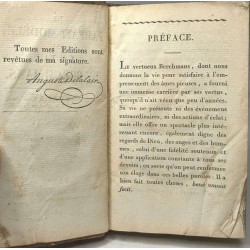 Toutes mes Editions sont
revêtues de ma signature.
Auguste Delalain
PRÉFACE.
LE vertueux Berchmans, dont nous
donnons la vie pour satisfaire à l'em-
pressement des âmes pieuses, a fourni
une immense carrière par ses vertus,
quoiqu'il n'ait vécu que peu d'années.
Sa vie ne présente ni des événemens
extraordinaires, ni des actions d'éclat;
mais elle offre un spectacle plus inté-
ressant encore, également digne des
regards de Dieu, des anges et des hom-
mes, celui d'une fidélité soutenue et
d'une application constante à tous ses
devoirs, en sorte qu'on peut renfermer
son éloge dans ces belles paroles: Il a
bien fait toutes choses, benè omnia
fecit.